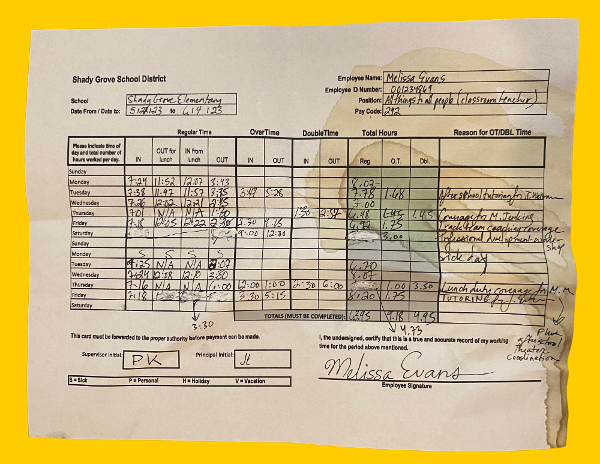 Shady Grove School District
Employee Name: Melissa Evans
Employee ID Number: 001234869
School Shady Grove Elementary
Position: All things to all people (classroom teacher)
Date From / Date to: to 6/14/23
Pay Code: 292
Regular Time OverTime DoubleTime Total Hours Reason for OT/DBL Time
Please indicate time of day and total number of hours worked per day. IN OUT for lunch IN from lunch OUT IN OUT IN OUT Reg O.T. Dbl.
Sunday
Monday 7:29 11:52 12:07 3:43 8.07
Tuesday 7:38 11:47 11:57 3:35 3:49 5:28 7.78 1.68 After school tutoring for
Wednesday 7:26 12:02 12:21 7.00
Thursday 7:01 N/A N/A 1:30 6.48 1.45 Coverage for M. Jenkins
Friday 12:05 12:22 1.75 Track team coaching coverage
Saturday 9:00 12:30 3.00 Professional development
Sunday
Monday S S S S Sick day
Tuesday N/A N/A 6.70
Wednesday 7:24 12:08 3:30 8.07
Thursday 7:16 N/A N/A 12:00 1:00 2:30 6:00 1.00 3.50 Lunch duty coverage for M.M
Friday 7:18 3:30 5:15 8.20 1.75 TUTORING
TOTALS (MUST BE COMPLETED): 9.18 4.95
3:30
4.73
Plus after school theater coordination
This card must be forwarded to the proper authority before payment can be made.
I, the undersigned, certify that this is a true and accurate record of my working time for the period above mentioned.
Supervisor Initial: PK Principal Initial: JL
Melissa Evans
S = Sick P = Personal H = Holiday V = Vacation
Employee Signature